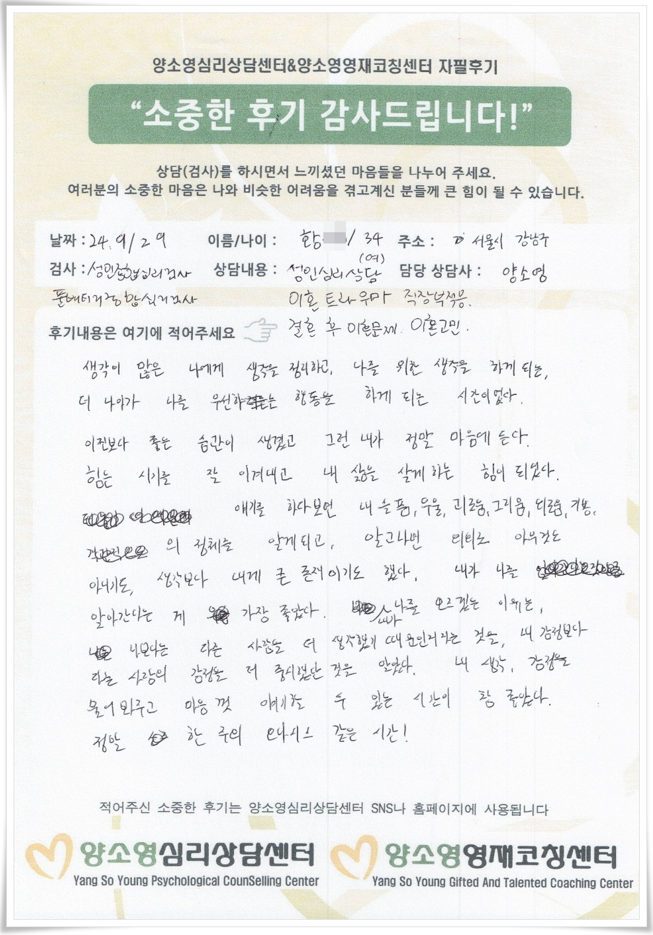 양소영심리상담센터&양소영영재코칭센터 자필후기
“소중한 후기 감사드립니다!”
상담(검사)를 하시면서 느끼셨던 마음들을 나누어 주세요.
여러분의 소중한 마음은 나와 비슷한 어려움을 겪고계신 분들께 큰 힘이 될 수 있습니다.
날짜 : 24. 9/29 이름/나이 : 황 / 34 (여) 주소 : 서울시 강남구
검사 : 성인종합심리검사 상담내용 : 성인심리상담 담당 상담사 : 양소영
풀배터리종합심리검사 이혼트라우마 직장부적응.
후기내용은 여기에 적어주세요 결혼 후 이혼문제. 이혼고민.
생각이 많은 나에게 생각을 정리하고, 나를 위한 생각을 하게 되는,
더 나아가 나를 우선하는 행동을 하게 되는 시간이었다.
이전보다 좋은 습관이 생겼고 그런 내가 정말 마음에 든다.
힘든 시기를 잘 이겨내고 내 삶을 살게하는 힘이 되었다.
얘기를 하다보면 내 슬픔, 우울, 괴로움, 그리움, 외로움,
의 정체를 알게되고, 알고나면 의외로 아무것도
아니기도, 생각보다 내게 큰 존재이기도 했다. 내가 나를
알아간다는 게 가장 좋았다. 내가 나를 모르겠는 이유는,
나보다는 다른 사람을 더 생각했기 때문이라는 것을, 내 감정보다
다른 사람의 감정을 더 중시했단 것을 알았다. 내 생각, 감정을
물어봐주고 마음 껏 얘기할 수 있는 시간이 참 좋았다.
정말 한 주의 오아시스 같은 시간!
적어주신 소중한 후기는 양소영심리상담센터 SNS나 홈페이지에 사용됩니다
양소영심리상담센터 양소영영재코칭센터
Yang So Young Psychological CounSelling Center Yang So Young Gifted And Talented Coaching Center